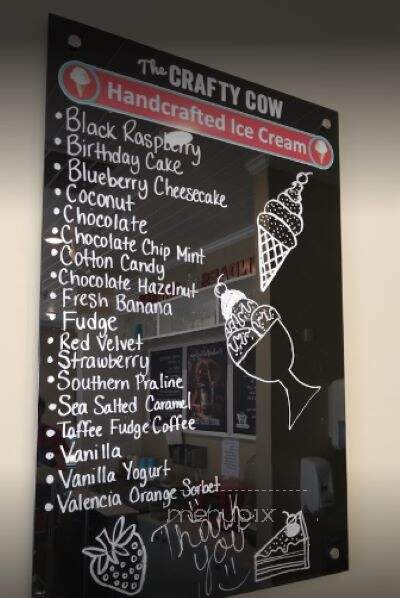 The CRAFTY COW
Handcrafted Ice Cream
• Black Raspberry
• Birthday Cake
• Blueberry Cheesecake
• Coconut
• Chocolate
• Chocolate Chip Mint
• Cotton Candy
• Chocolate Hazelnut
• Fresh Banana
• Fudge
• Red Velvet
• Strawberry
• Southern Praline
• Sea Salted Caramel
• Taffee Fudge Coffee
• Vanilla
• Vanilla Yogurt
• Valencia Orange Sorbet
menupix
Thank
You